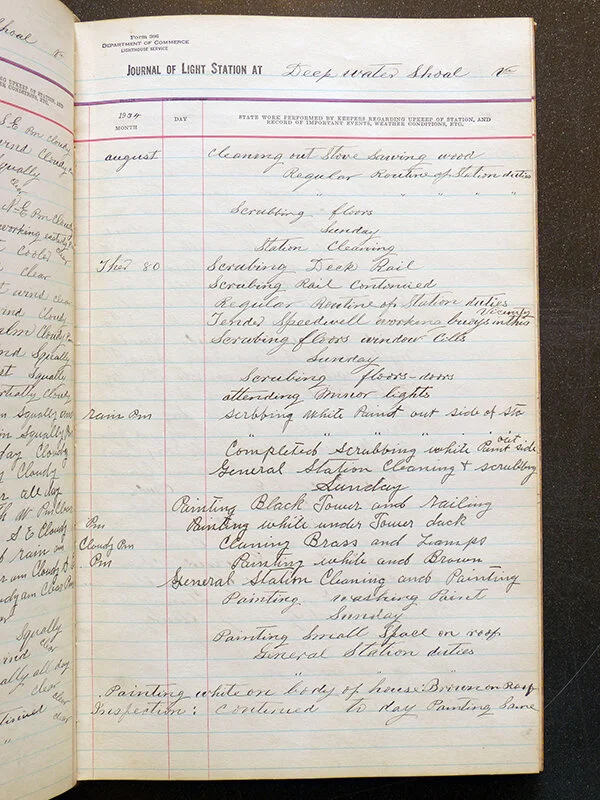 Shoal Va
Form 306
DEPARTMENT OF COMMERCE
LIGHTHOUSE SERVICE
JOURNAL OF LIGHT STATION AT Deep water Shoal Va
1934
MONTH
DAY
STATE WORK PERFORMED BY KEEPERS REGARDING UPKEEP OF STATION, AND
RECORD OF IMPORTANT EVENTS, WEATHER CONDITIONS, ETC.
august Cleaning out Stove Sawing wood
Regular Routine of Station duties
" " " "
Scrubbing floors
Sunday
Station Cleaning
Ther 80 Scrubing Deck Rail
Scrubing Rail Contonued
Regular Routine of Station duties
Tender Speedwell working buoys in this Vicinity
Scrubing floors window Cills
Sunday
Scrubing floors-doors
attending Minor lights
rain Pm Scrbbing White Paint out side of Sta
" " " " "
Completed Scrubbing white Paint out side
General Station Cleaning + scrubbing
Sunday
Painting Black Tower and railing
Pm Painting white under Tower deck
Cloudy Pm Claning Brass and Lamps
Pm Painting white and Brown
General Station Cleaning and Painting
Painting washing Paint
Sunday
Painting Small Space on roof
General Station duties
" " "
Painting white on body of house: Brown on Roof
Inspection: Continued to day Painting Same